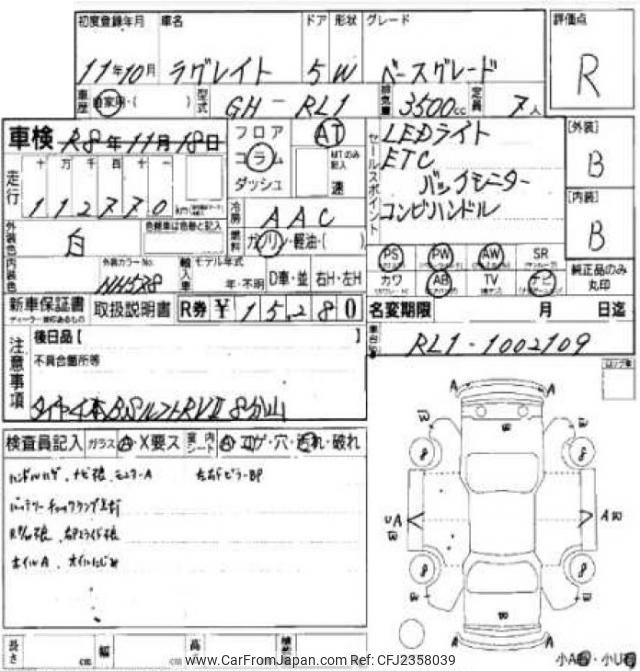 初度登録年月 車名 ドア 形状 グレード 評価点
11年10月 ラグレイト 5 W ベースグレード R
車歴 自家用・( ) 型式 GH-RL1 排気量 3500cc 定員 7人
車検 R8年11月18日 フロア AT セールスポイント LEDライト [外装]
走行 十 万 千 百 十 一 コラム MTのみ記入 ETC B
112770 ダッシュ 速 バックモニター
コンビハンドル [内装]
外装色 白 色替車は色番と記入 冷房 AAC B
燃料 ガソリン・軽油・( )
内装色 外装カラーNo. NH538 輸入車 モデル年式 年・不明 D車・並 右H・左H
PS PW AW SR 純正品のみ丸印
カワ AB TV ナビ
新車保証書 取扱説明書 R券 ¥15280 名変期限 月 日迄
ディーラー捺印あるもの
注意事項 後日品【 】 車台No. RL1-1002109
不具合箇所等
タイヤ4本BSルフトRVⅡ 8分山
検査員記入 ガラス A・X要ス 室内シート A・コゲ・穴・汚れ・破れ
ハンドルハゲ、ナビ損、モニターA 左右Fピラー BP
バッテリーチェックランプ点灯
ホイルA、オイルにじみ
A A
W W
8 8
UA W A W
8 8
W W
A A
長さ cm 幅 cm 高さ cm
小A ・小U
www.CarFromJapan.com Ref: CFJ2358039